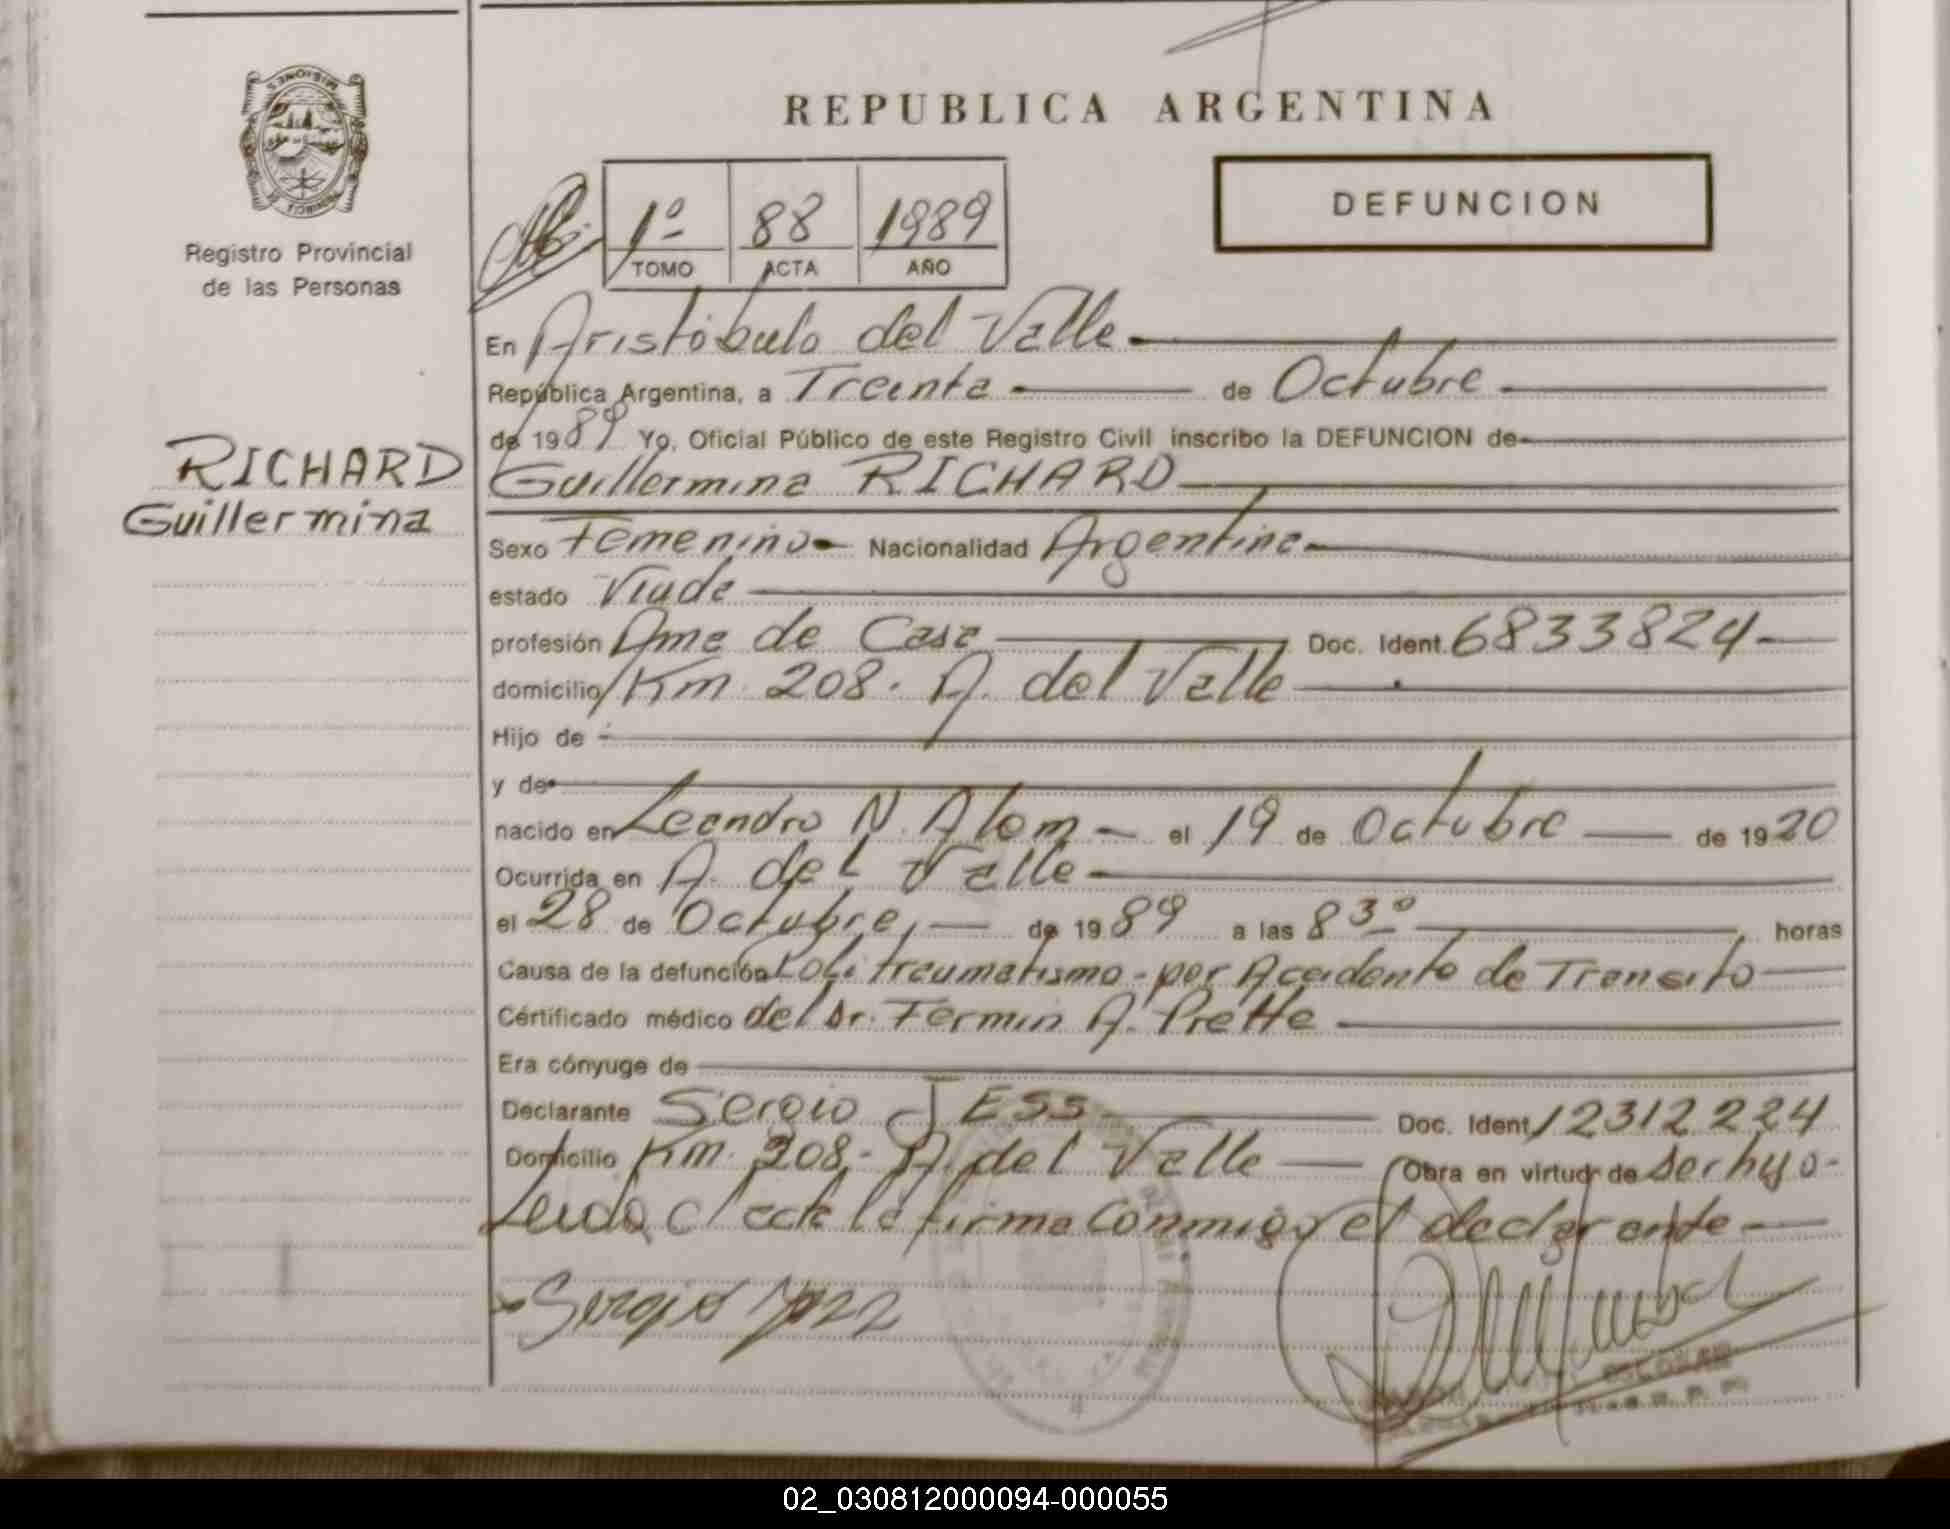 REPUBLICA ARGENTINA
MISIONES
PROVINCIA
Registro Provincial
de las Personas
1º 88 1989
TOMO ACTA AÑO
DEFUNCION
RICHARD
Guillermina
En Aristóbulo del Valle
República Argentina, a Treinta de Octubre
de 1989 Yo, Oficial Público de este Registro Civil inscribo la DEFUNCION de
Guillermina RICHARD
Sexo Femenino Nacionalidad Argentina
estado Viuda
profesión Ama de Casa Doc. Ident. 6833824
domicilio Km. 208. A. del Valle
Hijo de
y de
nacido en Leandro N. Alem el 19 de Octubre de 1920
Ocurrida en A. del Valle
el 28 de Octubre, de 1989 a las 8 30 horas
Causa de la defunción Politraumatismo - por Accidente de Transito
Cértificado médico del Dr. Fermin A.
Era cónyuge de
Declarante Sergio JESS Doc. Ident 12312224
Domicilio Km. 208 - A. del Valle Obra en virtud de ser hijo -
Leida el acta la firma conmigo el declarante
Sergio
02_030812000094-000055